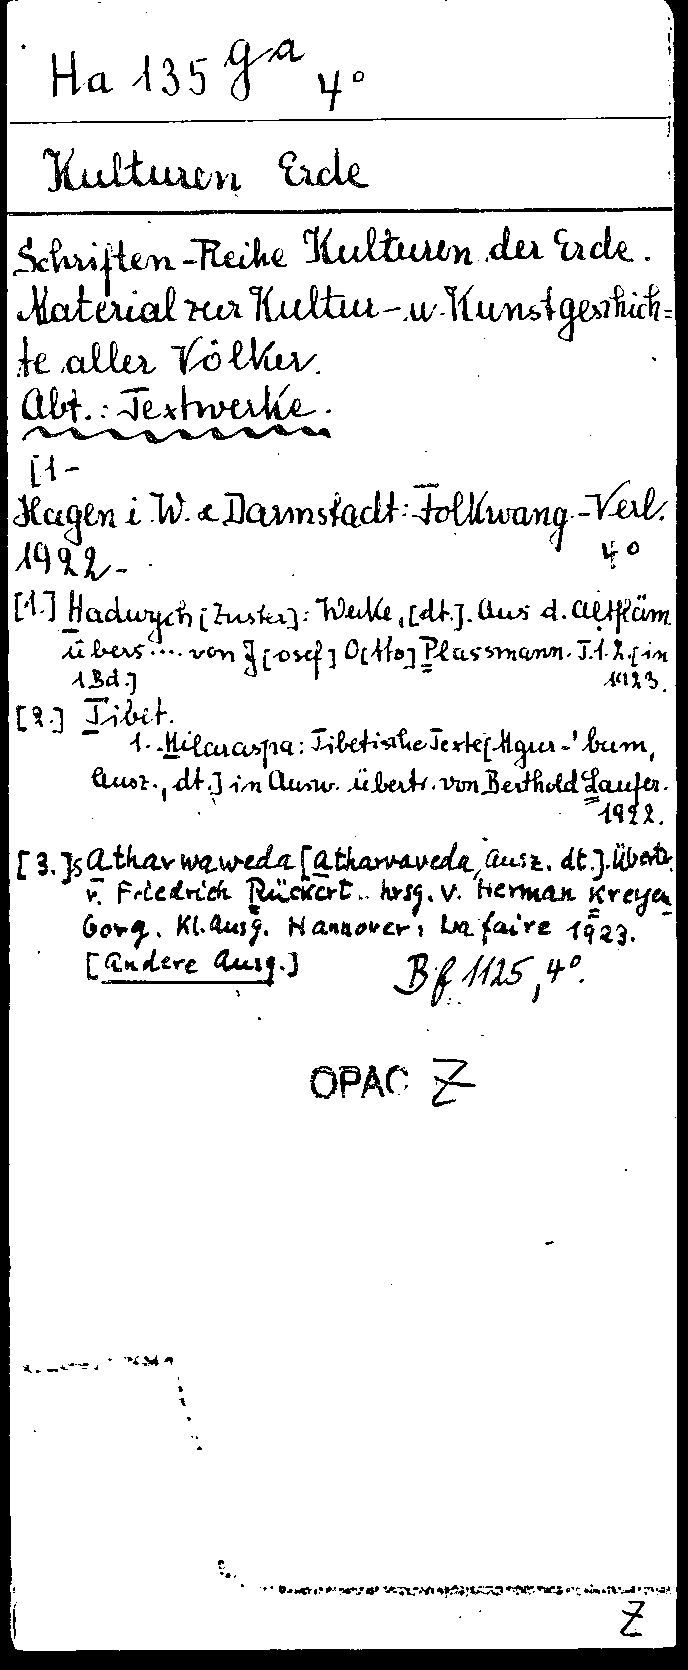 Ha 135 ga 4°
Kulturen Erde
Schriften-Reihe Kulturen der Erde.
Material zur Kultur- u. Kunstgeschich=
te aller Völker.
Abt.: Textwerke.
[1-
Hagen i. W. & Darmstadt: Folkwang-Verl.
1922- 4°
[1.] Hadwych [Zuster]: Werke, [dt.]. Aus d. Altfläm.
übers.... von J[osef] O[tto] Plassmann. T.1.2. [in
1 Bd.] 1923.
[2.] Tibet.
1. Milaraspa: Tibetische Texte [Mgur-'bum,
Ausz., dt.] in Ausw. übertr. von Berthold Laufer.
1922.
[3.] Atharwaweda [Atharvaveda, Ausz. dt.]. Übertr.
v. Friedrich Rückert.. hrsg. v. Herman Kreyen
borg. Kl. Ausg. Hannover: Lafaire 1923.
[Andere Ausg.] Bf 1125, 4°.
OPAC Z
Z